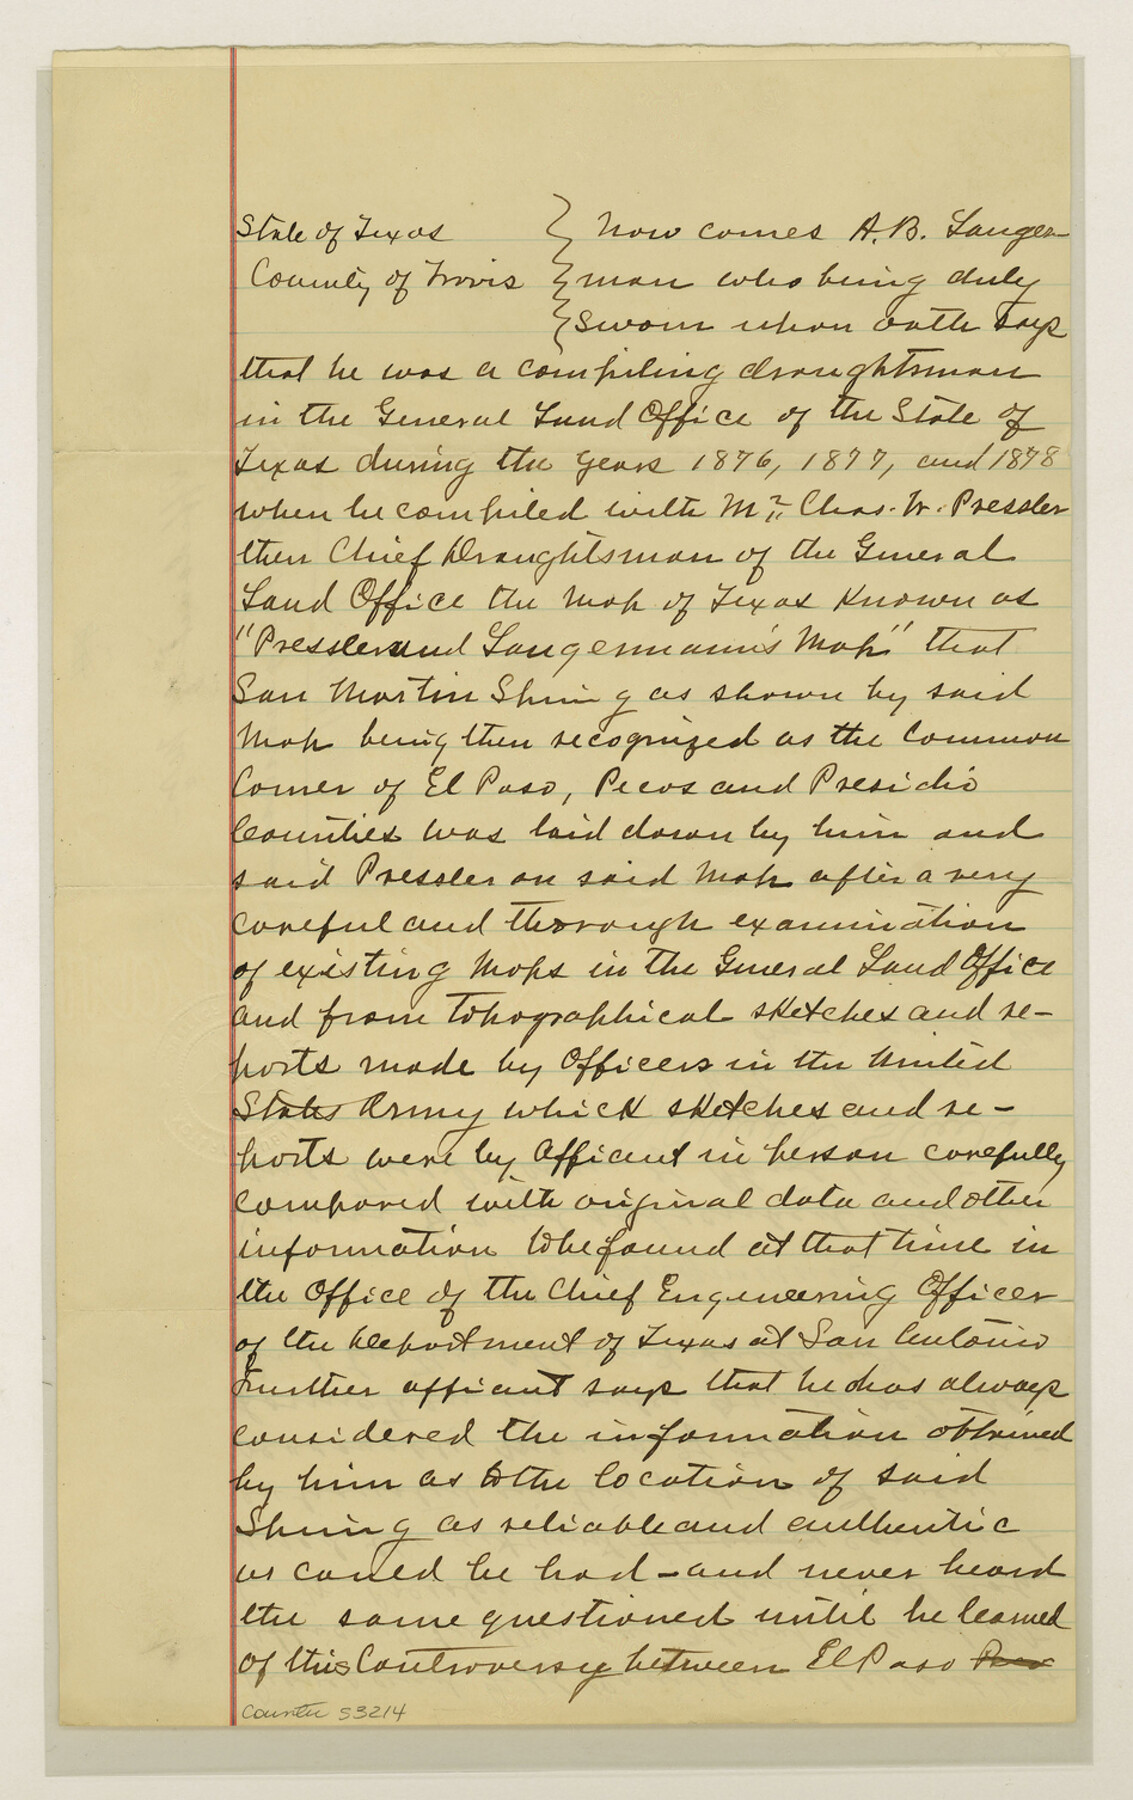 State of Texas } Now comes A.B. Langer-
County of Travis } man who being duly
} sworn upon oath says
that he was a compiling draughtsman
in the General Land Office of the State of
Texas during the years 1876, 1877, and 1878
when he compiled with Mr. Chas. W. Pressler
then Chief Draughtsman of the General
Land Office the Map of Texas Known as
"Pressler and Langermann's Map" that
San Martin Spring as shown by said
Map being then recognized as the Common
Corner of El Paso, Pecos and Presidio
Counties was laid down by him and
said Pressler on said Map after a very
careful and thorough examination
of existing Maps in the General Land Office
and from topographical sketches and re-
ports made by Officers in the United
States Army which sketches and re-
ports were by Affiant in person carefully
compared with original data and other
information to be found at that time in
the Office of the Chief Engineering Officer
of the Department of Texas at San Antonio
Further affiant says that he has always
considered the information obtained
by him as to the location of said
Spring as reliable and authentic
as could be had - and never heard
the same questioned until he learned
of this Controversy between El Paso
Counter 53214